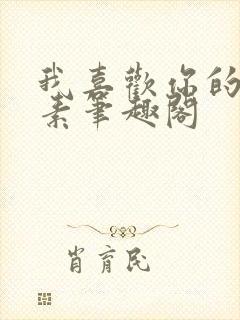 我喜歡你的
素筆趣閣
肖育民